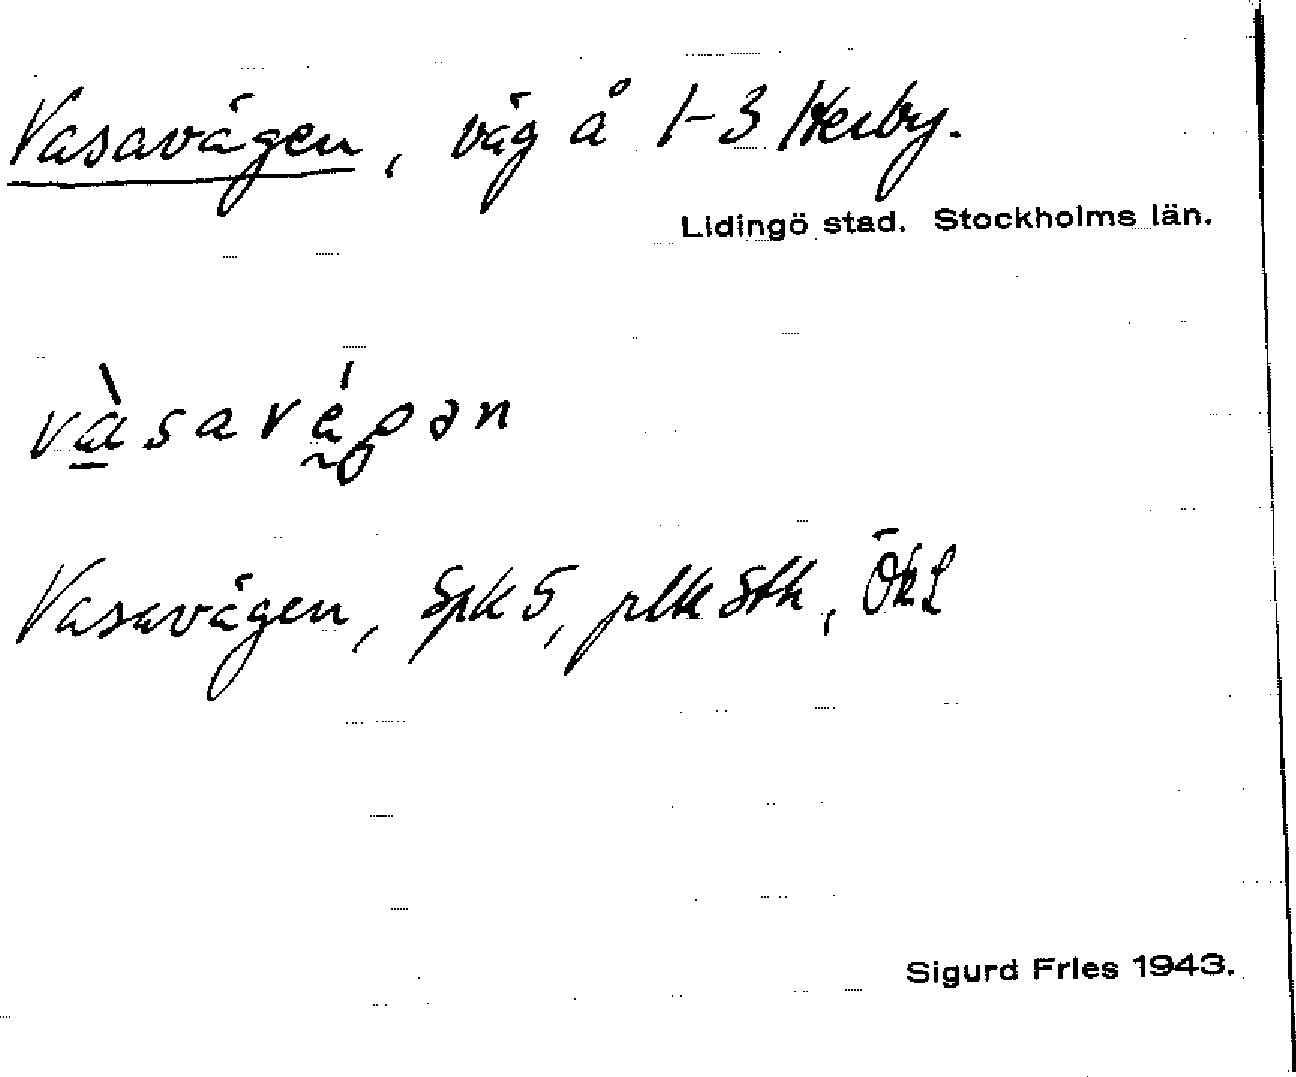 Vasavägen, väg å 1-3 Herby.
Lidingö stad. Stockholms län.
vàsavégən
Vasavägen, SpK5, plK Sth, ÖKL
Sigurd Fries 1943.